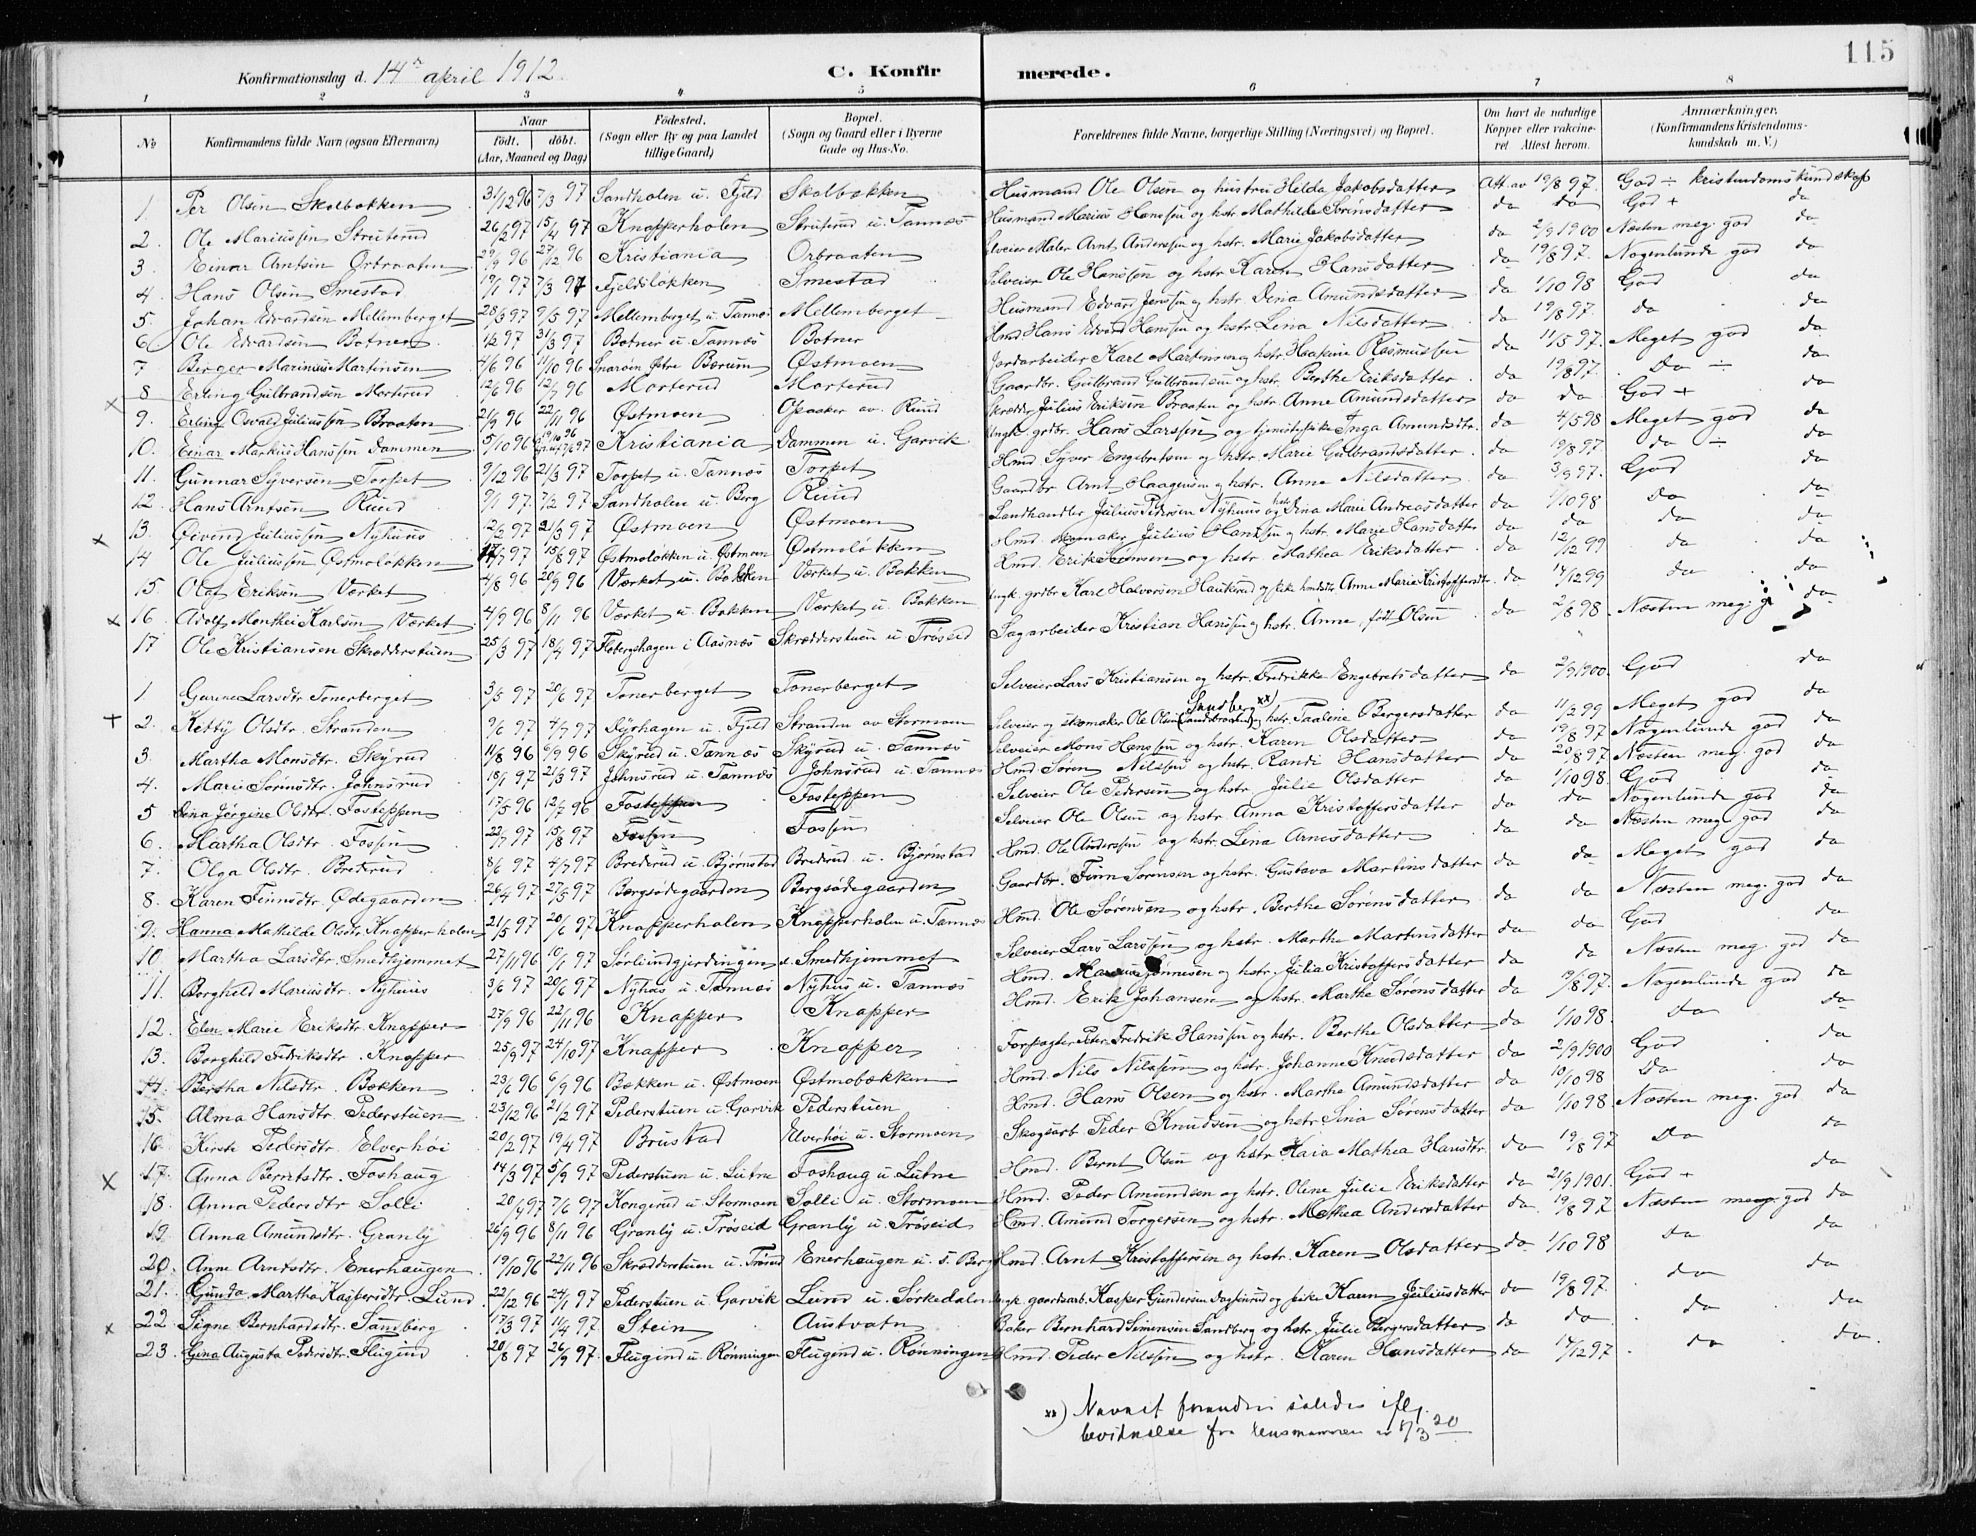 115
Konfirmationsdag d. 14de april 1912. C. Konfirmerede.
1 2 3 4 5 6 7 8
No Konfirmandens fulde Navn (ogsaa Efternavn) Naar født. døbt. (Aar, Maaned og Dag) Fødested. (Sogn eller By og paa Landet tillige Gaard) Bopæl. (Sogn og Gaard eller i Byerne Gade og Hus-No. Forældrenes fulde Navne, borgerlige Stilling (Næringsvei) og Bopæl. Om havt de naturlige Kopper eller vakcineret Attest herom. Anmærkninger. (Konfirmandens Kristendomskundskab m. V.)
1. Per Olsen Skolbækken 31/12 96 7/3 97 Sandholen u. Fjeld Skolbækken Husmand Ole Olsen og hustru Helda Jakobsdatter Att. av 19/8 97. God ÷ kristendomskundskap
2. Ole Mariussen Struterud 26/2 97 15/4 97 Knapperholen Struterud u. Tannæs Husmand Marius Hanssen og hstr. Mathilde Sørensdatter da da God + da
3. Einar Arntsen Ørbraaten 29/9 96 27/12 96 Kristiania Ørbraaten Selveier Maler Arnt Anderssen og hstr. Marie Jakobsdatter da 2/9 1900 Næsten meg. god da
4. Hans Olsen Smestad 19/1 97 7/3 97 Fjeldsløkken Smestad Selveier Ole Hanssen og hstr. Karen Hansdatter da 19/8 97. Nogenlunde god da
5. Johan Edvardsen Mellemberget 28/3 97 9/5 97 Mellemberget u. Tannæs Mellemberget Husmand Edvard Jenssen og hstr. Dina Amundsdatter da 1/10 98 God da
6. Ole Edvardsen Botner 1/2 97 31/3 97 Botner u. Tannæs Botner Hmd Hans Edvard Hanssen og hstr. Lena Nilsdatter da 19/8 97. da da
7 Berger Marinius Martinsen 4/6 96 11/10 96 Snarøin Østre Bærum Østmoen Jordarbeider Karl Martinsen og hstr. Haakine Rasmussen da 11/5 97. Meget god da
8 Erling Gulbrandsen Morterud 12/6 96 12/7 96 Morterud Morterud Gaardbr. Gulbrand Gulbrandsen og hstr. Berthe Eriksdatter da 19/8 97. Da ÷ da
9. Erling Osvald Juliussen Braaten 21/9 96 22/11 96 Østmoen Opsaker av. Ruud Skrædder Julius Eriksen Braaten og hstr. Anne Amundsdatter da da God + da
10. Einar Markus Hanssen Dammen 5/10 96 Kristiania Dammen u. Garvik Ungk. grdbr. Hans Larssen og tjenestepike Inga Amundsdtr. da 4/5 98 Meget god da
11. Gunnar Syversen Torpet 9/12 96 21/3 97 Torpet u. Tannæs Torpet Hmd Syver Engebretsen og hstr. Marie Gulbrandsdatter da 19/8 97. da ÷ da
12. Hans Arntsen Ruud 9/1 97. 7/2 97 Sandholen u. Berg Ruud Gaardbr Arnt Haagensen og hstr. Anne Nilsdatter da 3/9 97. God da
13. Øivind Juliussen Nyhuus 12/2 97 21/3 97 Østmoen Østmoen Landhandler Julius Pedersen Nyhuus og hstr Dina Marie Andreasdatter da 1/10 98 Da da
14 Ole Juliussen Østmoløkken 97 15/8 97 Østmoløkken u. Østmoen Østmoløkken Hmd. skomaker Julius Hanssen og hstr. Marie Hansdatter da da da da
15. Olaf Eriksen Værket 4/8 96 20/9 96 Værket u. Bakken Værket u. Bakken Hmd. Erik Simensen og hstr Mathea Eriksdatter da 12/12 99 da da
16. Adolf Monthei Karlsen Værket 4/9 96 8/11 96 Værket u. Bakken Værket u. Bakken Ungk. grdbr Karl Halvorsen Haukerud og pike Anne Marie Kristoffersdtr. da 14/12 99 da da
17 Ole Kristiansen Skrædderstuen 25/3 97 18/4 97 Flobergshagen i Aasnæs Skrædderstuen u Trøseid Sagarbeider Kristian Hanssen og hstr. Anne, født Olsen da 2/8 98 Næsten meg. g da
1 Gurine Larsdtr Tonerberget 3/5 97 20/6 97 Tonerberget Tonerberget Selveier Lars Kristiansen og hstr. Fredrikke Engebretsdatter da 2/9 1900. God da
2. Kitty Olsdtr. Stranden 9/6 97 4/7 97 Dyrhagen u. Fjeld Stranden av Stormoen Selveier og skomaker Ole Olsen (Sandbraaten) Sandberg xx) og hstr. Taaline Bergersdatter da 11/2 99 Meget god da
3. Martha Monsdtr. Skyrud 11/8 96 6/9 96 Skyrud u. Tannæs Skyrud u. Tannæs Selveier Mons Hanssen og hstr. Karen Olsdatter da 19/8 97 Nogenlunde god da
4. Marie Sørensdtr. Johnsrud 18/1 97 21/3 97 Johnsrud u. Tannæs Johnsrud u. Tannæs Hmd. Søren Nilssen og hstr. Randi Hansdatter da 20/8 97 Næsten meg. god da
5 Dina Jørgine Olsdtr. Fosteppen 17/5 96 12/7 96 Fosteppen Fosteppen Selveier Ole Pedersen og hstr. Julie Olsdatter da 1/10 98. God da
6. Martha Olsdtr. Fossen 22/7 97 15/8 97 Fossen Fossen Selveier Ole Olsen og hstr. Anna Kristoffersdatter da da Nogenlunde god da
7. Olga Olsdtr. Brederud 8/6 97 4/7 97 Brederud u. Bjørnstad Brederud u. Bjørnstad Hmd. Ole Anderssen og hstr. Lena Arnesdatter da da Næsten meg. god da
8. Karen Finnsdtr. Ødegaarden 26/4 97 27/5 97 Bergsødegaarden Bergsødegaarden Gaardbr. Finn Sørensen og hstr. Gustava Martinsdatter da da Meget god da
9. Hanna Mathilde Olsdtr. Knapperholen 21/5 97 20/6 97 Knapperholen Knapperholen u. Tannæs Hmd. Ole Sørensen og hstr. Berthe Sørensdatter da da Næsten meg. god da
10. Martha Larsdtr. Smedhjemmet 27/11 96 10/1 97 Sørlundgjerdingen Smedhjemmet Selveier Lars Larssen og hstr. Marthe Martinsdatter da da God da
11. Borghild Mariusdtr. Nyhuus 3/6 97 20/6 97 Nyhus u. Tannæs Nyhus u. Tannæs Hmd. Marius Hanssen og hstr. Julia Kristoffersdatter da da Næsten meg. god da
12. Elen Marie Eriksdtr. Knapper 27/9 96 22/11 96 Knapper Knapper Hmd. Erik Johansen og hstr. Marthe Sørensdatter da 19/8 97. Nogenlunde god da
13. Borghild Fredriksdtr. Knapper 25/9 97 24/10 97 Knapper Knapper Forpagter Peter Fredrik Hanssen og hstr. Berthe Olsdatter da 1/10 98. Da da
14. Bertha Nilsdtr. Bækken 23/6 96 6/9 96 Bækken u. Østmoen Østmobækken Hmd. Nils Nilssen og hstr. Johanne Knudsdatter da 2/9 1900 God da
15. Alma Hansdtr. Pederstuen 23/12 96 21/2 97 Pederstuen u Garvik Pederstuen Hmd. Hans Olsen og hstr. Martha Amundsdatter da 10/10 98 Da da
16. Kirste Pedersdtr. Elverhøi 20/2 97 19/4 97 Brustad Elverhøi u. Stormoen Skogsarb Peder Knudsen og hstr Sina Sørensdatter da 1/10 98. Næsten meg. god da
17. Anna Berntsdtr. Foshaug 14/3 97 5/9 97 Pederstuen u. Lutne Foshaug u Lutne Hmd. Bernt Olsen og hstr. Kaia Mathea Hansdtr. da 19/8 97 Da da
18. Anna Pedersdtr Solli 20/4 97 7/6 97 Kongerud u Stormoen Solli u. Stormoen Hmd. Peder Amundsen og hstr. Olene Julie Eriksdatter da 21/9 1901. God + da
19. Anna Amundsdtr. Granly 26/9 96 8/11 96 Granly u. Trøseid Granly u. Trøseid Hmd. Amund Torgersen og hstr. Mathea Andersdatter da 19/8 97 Næsten meg. god da
20. Anne Arntsdtr. Enerhaugen 19/10 96 22/11 96 Skrædderstuen u. Trøseid Enerhaugen u. s. Berg Hmd. Arnt Kristoffersen og hstr. Karen Olsdatter da 1/10 98 da da
21. Gunda Martha Kaspersdtr. Lund 22/12 96 24/1 97 Pederstuen u. Garvik Lund u. Sørkedalen Ungk. gaardsarb. Kasper Gundersen og pike Karen Juliusdatter da 19/8 97. da da
22 Signe Bernhardsdtr. Sandberg 17/3 97 11/4 97. Stein Austvatn Baker Bernhard Simensen Sandberg og hstr. Julie Bergersdatter da da da da
23. Gina Augusta Pedersdtr. Flugund 20/8 97 26/9 97. Flugund u. Rønningen Flugend u. Rønningen Hmd Peder Nilssen og hstr. Karen Hansdatter da 14/12 97 da da.
xx) Navnet forandres således iflg.
bevidnelse fra lensmannen av 17/3 20